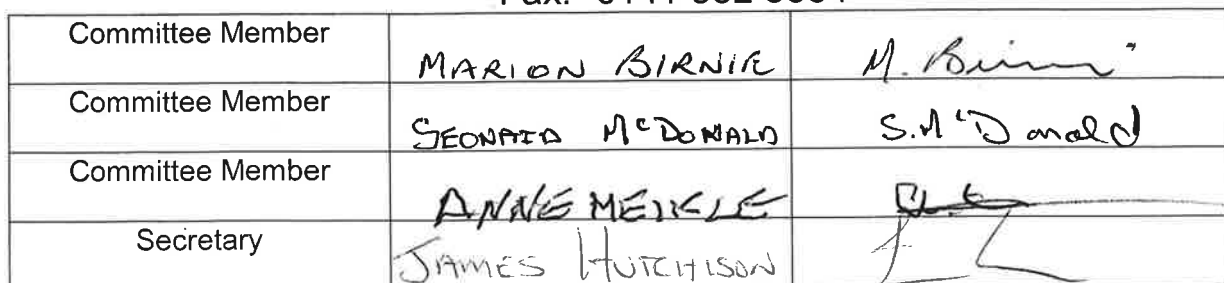 Committee Member MARION BIRNIE M. Birnie
Committee Member SEONAID McDONALD S. McDonald
Committee Member ANNE MEIKLE
Secretary JAMES HUTCHISON